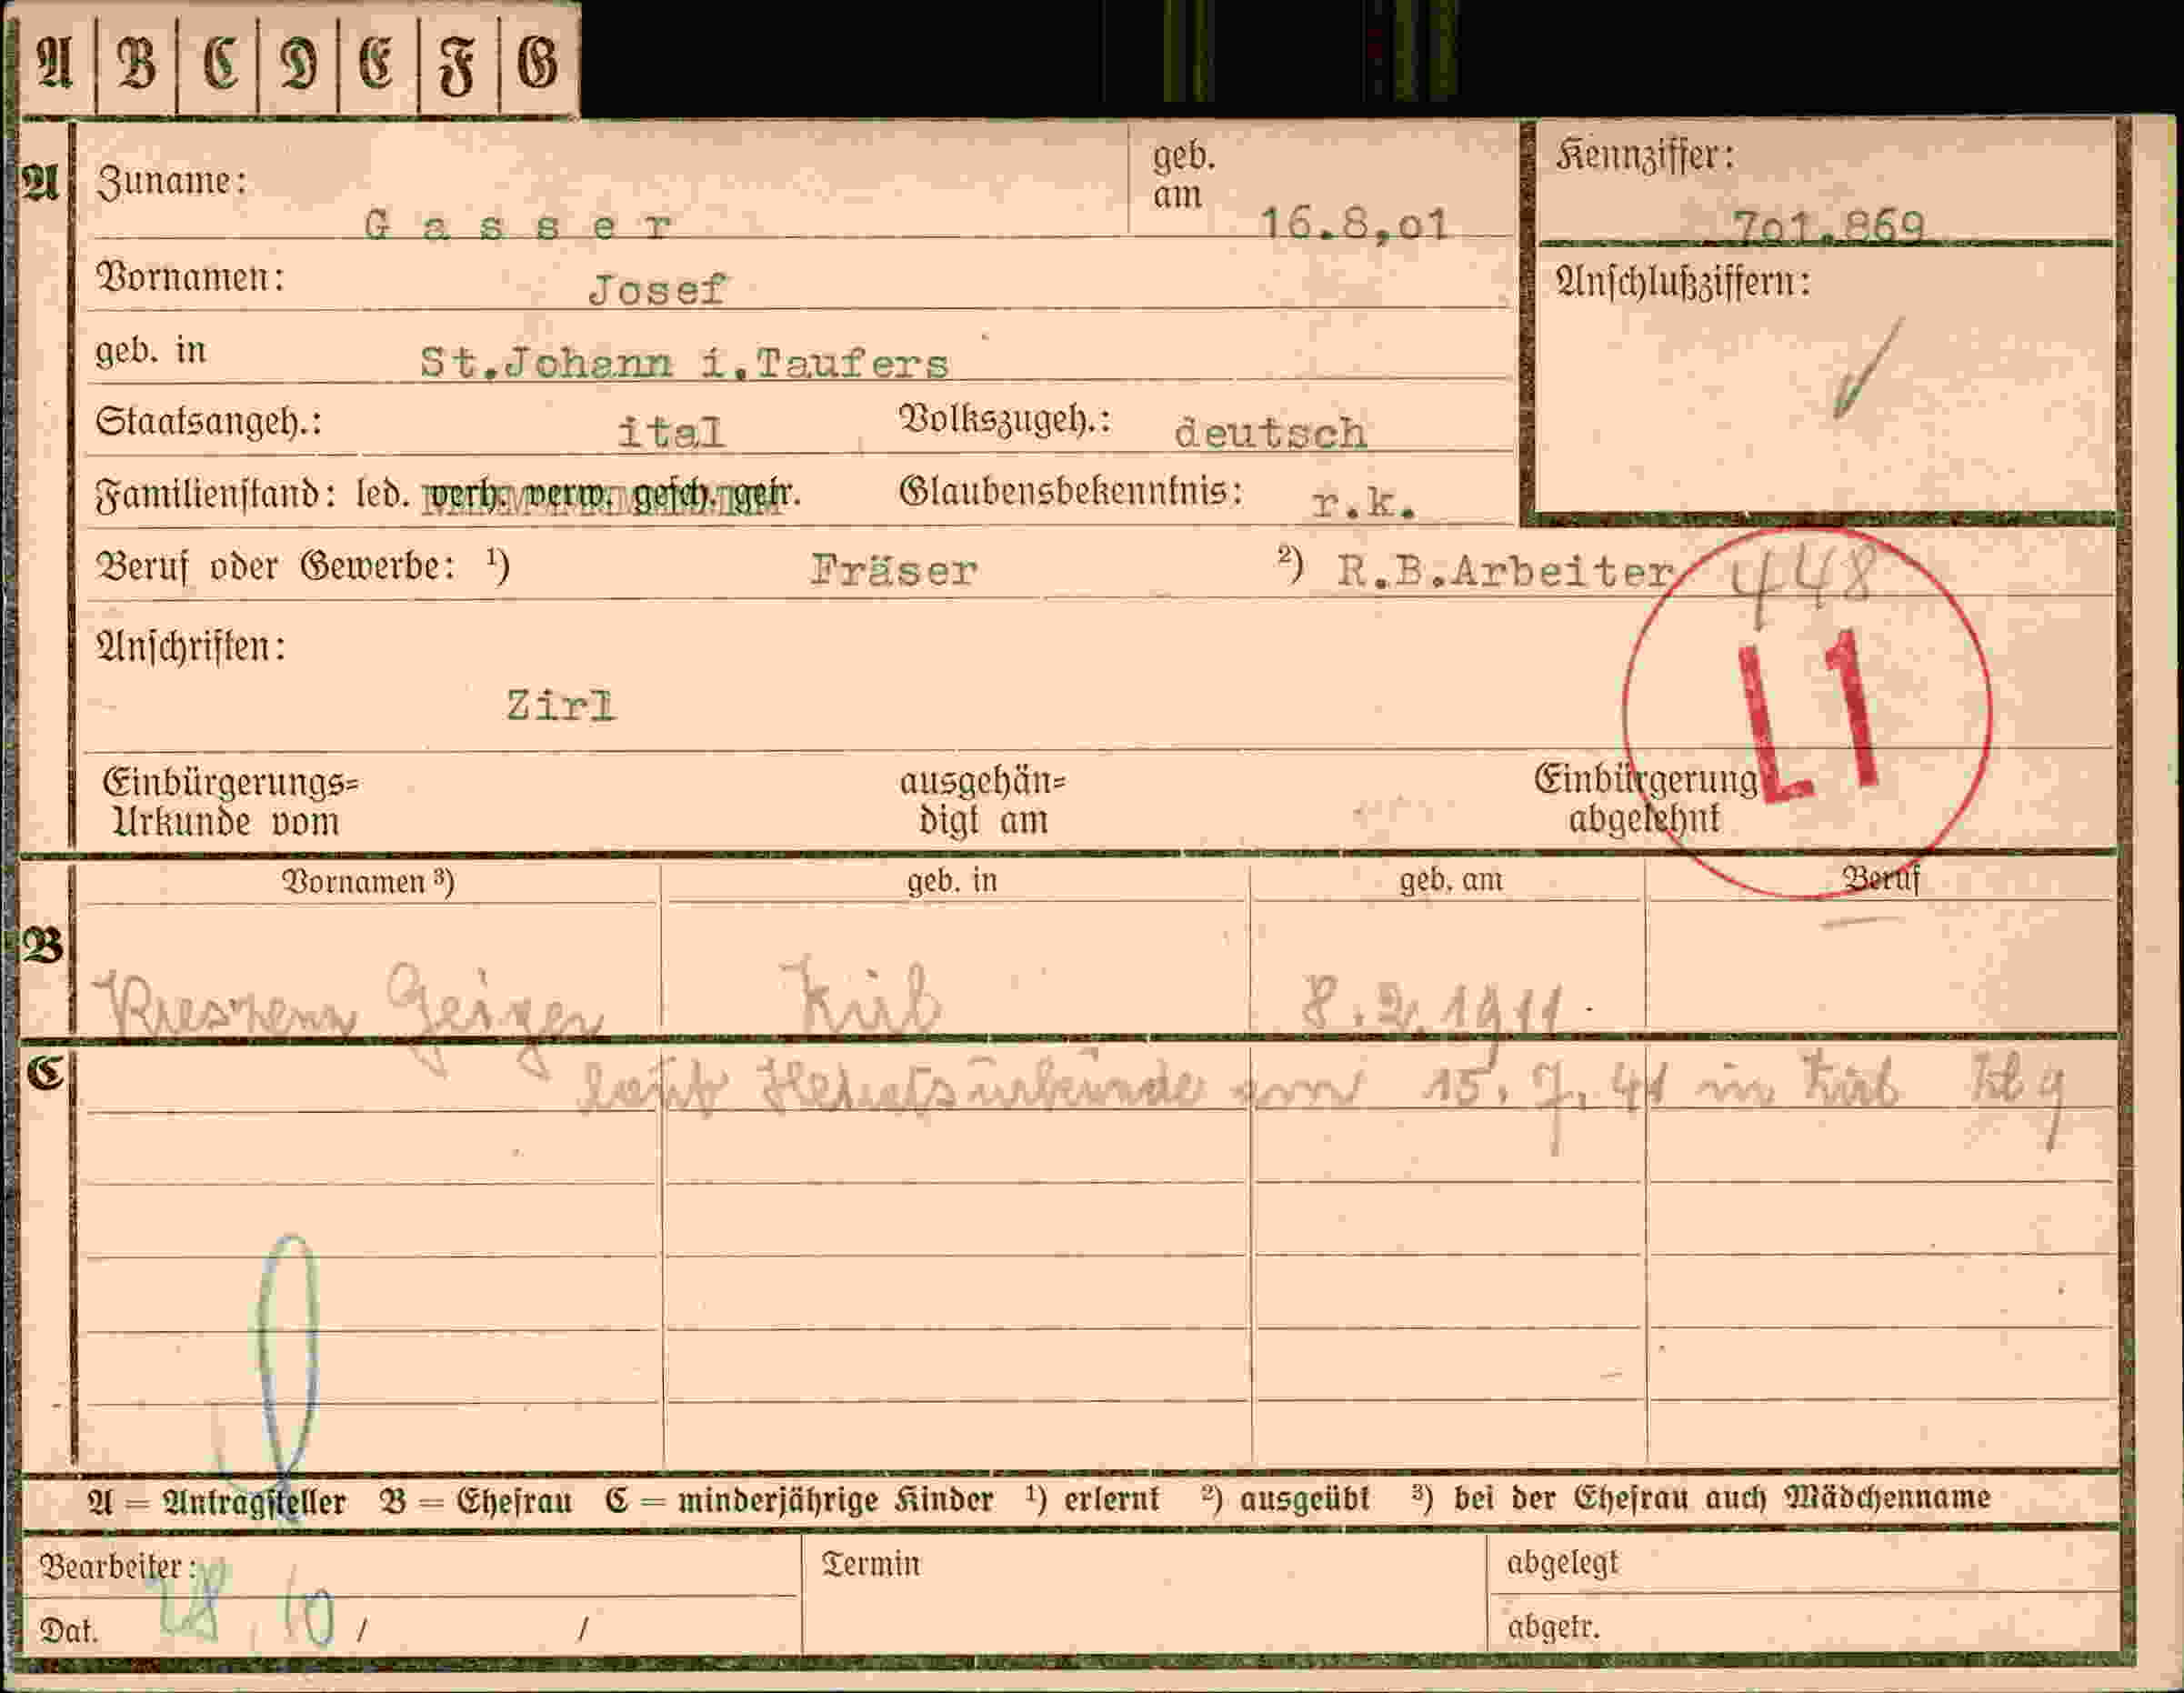 A B C D E F G
A Zuname: Gasser geb. am 16.8,01 Kennziffer: 701.869
Vornamen: Josef Anschlußziffern:
geb. in St.Johann i.Taufers
Staatsangeh.: ital Volkszugeh.: deutsch
Familienstand: led. verh. verw. gesch. getr. Glaubensbekenntnis: r.k.
Beruf oder Gewerbe: ¹) Fräser ²) R.B.Arbeiter 448
Anschriften: L1
Zirl
Einbürgerungs= ausgehän= Einbürgerung
Urkunde vom digt am abgelehnt
Vornamen ³) geb. in geb. am Beruf
B Geiger 8.2.1911.
C laut am 15. 7. 41 in
A = Antragsteller B = Ehefrau C = minderjährige Kinder ¹) erlernt ²) ausgeübt ³) bei der Ehefrau auch Mädchenname
Bearbeiter: Termin abgelegt
Dat. 28.10 / / abgetr.